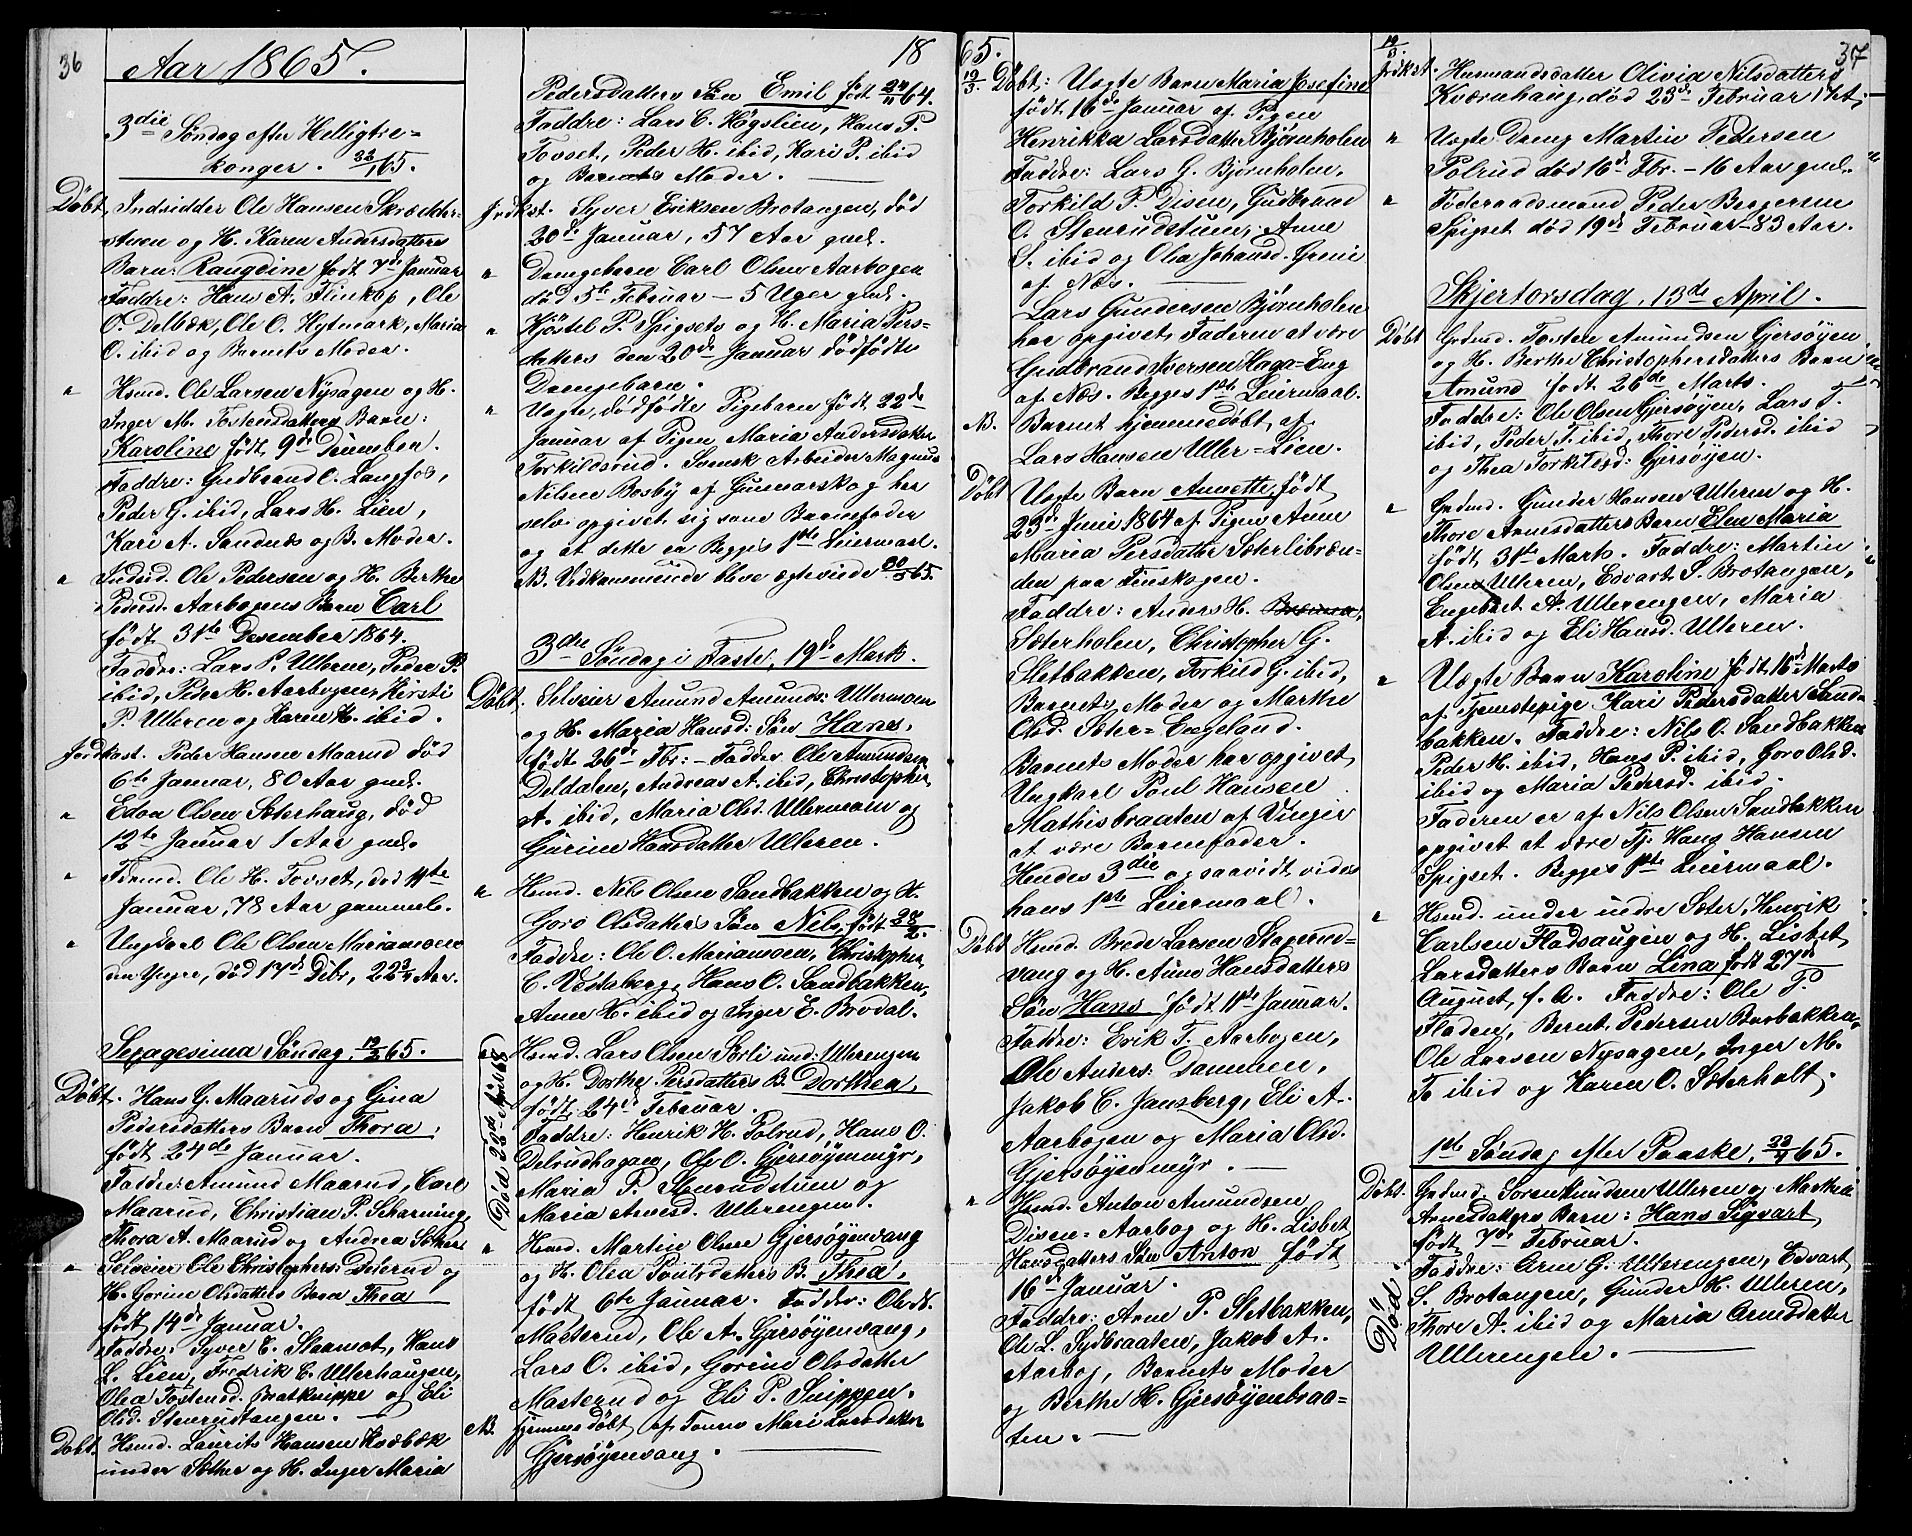 36
Aar 1865.
3die Søndag efter Helligtre-
konger. 22/1 65.
Døbt. Indsidder Ole Hansen Skrædder-
stuen og H. Karen Andersdatters
Barn: Rangdine født 7de Januar
Faddre: Hans A. Flinkop, Ole
O. Delbæk, Ole O. Hytmark, Maria
O. ibid og Barnets Moder.
" Hsmd. Ole Larsen Nysagen og H.
Inger M. Tostensdatters Barn:
Karoline født 9de December.
Faddre: Gudbrand O. Langfos,
Peder G. ibid, Lars H. Lien,
Kari A. Sandnæs og B. Moder.
" Indsid. Ole Pedersen og H. Berthe
Pedersd. Aarbogens Barn Carl
født 31te Desember 1864.
Faddre: Lars P. Ulleren, Peder P.
ibid, Peder H. Aarbogen, Kirsti
P. Ulleren og Karen H. ibid.
Jordkast. Peder Hansen Maarud død
6te Januar, 80 Aar gml.
" Edon Olsen Sæterhaug, død
12te Januar 1 Aar gml.
" Fdrmd. Ole H. Tovset, død 11te
Januar, 78 Aar gammel.
" Ungkarl Ole Olsen Mariamoen
død 17de Debr, 22 3/4 Aar.
Sexagesima Søndag, 19/2 65.
Døbt. Hans G. Maaruds og Gina
Pedersdatters Barn Thora,
født 24de Januar.
Faddre: Amund Maarud, Carl
Maarud, Christian P. Scharning,
Thora A. Maarud og Andrea Sæther.
" Selveier Ole Christophers. Diserud og
H. Gorine Olsdatters Barn Thea
født 14de Januar.
Faddre: Syver E. Slaamot, Hans
L. Lien, Fredrik E. Ullerhaugen,
Olea Tostensd. Bratknippe og Eli
Olsd. Stenrudtangen.
Døbt. Hsmd. Laurits Hansen Kvæbæk
under Sæther og H. Inger Maria
18
Pedersdatters Søn Emil født 24/11 64.
Faddre: Lars C. Høgslien, Hans P.
Tovset, Peder H. ibid, Kari P. ibid
og Barnets Moder.
Jrdkst. Syver Eriksen Brotangen, død
20de Januar, 57 Aar gml.
" Drengebarn Carl Olsen Aarbogen
død 5te Februar – 5 Uger gml.
" Kjøstel P. Spigsets og H. Maria Pers-
datters den 20de Januar dødfødte
Drengebarn.
" Uægte, dødfødte Pigebarn født 22de
Januar af Pigen Maria Andersdatter
Torkildsrud. Svensk Arbeider Magnus
Nilsen Bosby af Gunnarskog har
selv opgivet sig som Barnefader
og at dette er Begges 1ste Leiermaal.
NB. Vedkommende bleve ægteviede 65.
3die Søndag i Faste, 19de Marts.
Døbt. Selveier Amund Amunds. Ullermoen
og H. Maria Hansd: Søn Hans,
født 26de Fbr: – Faddre: Ole Amundsen
Deldalen, Andreas A. ibid, Christopher
A. ibid, Maria Olsd. Ullermoen og
Gurine Hansdatter Ulleren.
" Hsmd. Nils Olsen Sandbakken og H.
Goro Olsdatters Søn Nils, født 22/2.
Faddre: Ole O. Mariamoen, Christopher
C. Vestaberg, Hans O. Sandbakken,
Anne H. ibid og Inger E. Brodal.
(Død 28de April 68)
Hsmd. Lars Olsen Sørli und. Ullerengen
og H. Dorthe Persdatters B. Dorthea,
født 24de Februar.
Faddre: Henrik H. Polrud, Hans O.
Delrudhagen, Ole O. Gjersøyenmyr,
Maria P. Stenrudstuen og
Maria Arnesd. Ullerengen.
" Hsmd. Martin Olsen Gjersøyenvang
og H. Olea Poulsdatters B. Thea,
født 6te Januar. Faddre: Ole K.
Masterud, Ole A. Gjersøyenvang,
Lars O. ibid, Gorine Olsdatter
Masterud og Eli P. Snippen.
NB. hjemmedøbt af Konen Mari Larsdatter
Gjersøyenvang.
65.
19/3 Døbt: Uægte Barn Maria Josefine
født 16de Januar af Pigen
Henrikka Larsdatter Bjørnholen
Faddre: Lars G. Bjørnholen,
Torkild P. Disen, Gudbrand
O. Stenrudstuen, Anne
S. ibid og Olea Johansd. Grene
af Næs.
Lars Gundersen Bjørnholen
har opgivet Faderen at være
Gudbrand Iversen Haga-Eng
af Næs. Begges 1ste Leiermaal.
NB. Barnet hjemmedøbt af
Lars Hansen Uller-Lien.
Døbt Uægte Barn Annette, født
23de Juni 1864 af Pigen Anne
Maria Persdatter Sæterlibræn-
den paa Finskogen.
Faddre: Anders H.
Sæterholen, Christopher G.
Sletbakken, Torkild G. ibid,
Barnets Moder og Marthe
Olsd. Sæter-Engelund.
Barnets Moder har opgivet
Ungkarl Poul Hansen
Mathisbraaten af Vinger
at være Barnefader.
Hendes 3die og saavidt vides
hans 1ste Leiermaal.
Døbt Hsmd. Brede Larsen Slaperud-
vang og H. Anne Hansdatters
Søn Hans født 11te Januar.
Faddre: Erik T. Aarbogen,
Ole Anders: Dammen,
Jakob C. Jansberg, Eli A.
Aarbogen og Maria Olsd.
Gjersøyenmyr.
" Hsmd. Anton Amundsen
Disen-Aarbog og H. Lisbet
Hansdatters Søn Anton født
16de Januar.
Faddre: Arne P. Sletbakken,
Ole L. Sydbraaten, Jakob A.
Aarbog, Barnets Moder
og Berthe H. Gjersøyenbraa-
ten.
37
19/3 Jrdkst. Husmandsdatter Olivia Nilsdatters
Kværnhaug, død 23de Februar,
" Uægte Dreng Martin Pedersen
Polrud død 16de Fbr. – 16 Aar gml.
" Føderaadsmand Peder Bergersen
Spigset død 19de Februar – 83 Aar.
Skjertorsdag, 13de April.
Døbt Grdmd. Tosten Amundsen Gjersøyen,
og H. Berthe Christophersdatters Barn
Amund født 26de Marts.
Faddre: Ole Olsen Gjersøyen, Lars T.
ibid, Peder T. ibid, Thore Pedersd. ibid
og Thea Torkildsd: Gjersøyen.
" Grdmd. Gunder Hansen Ulleren og H.
Thore Arnesdatters Barn Elen Maria
født 31te Marts. Faddre: Martin
Olsen Ulleren, Edvart S. Brotangen,
Engebret A. Ullerengen, Maria
A. ibid og Eli Hansd. Ulleren.
" Uægte Barn Karoline født 16de Marts
af Tjenestepige Kari Pedersdatter Sand-
bakken. Faddre: Nils O. Sandbakken
Peder H. ibid, Hans P. ibid, Goro Olsd.
ibid og Maria Pedersd. ibid.
Faderen er af Nils Olsen Sandbakken
opgivet at være Tj. Hans Hansen
Spigset. Begges 1ste Leiermaal.
" Hsmd. under indre Sæter, Henrik
Carlsen Fladhaugen og H. Lisbet
Larsdatters Barn Lina født 27de
August, f. A. Faddre: Ole P
Floden, Bernt Pedersen Borbakken,
Ole Larsen Nysagen, Inger M.
T. ibid og Karen O. Sæterholt.
1ste Søndag efter Paaske, 23/4 65.
Døbt. Grdmd. Soren Knudsen Ulleren og Marthea
Arnesdatters Barn: Hans Sigvart,
født 7de Februar.
Død.
Faddre: Arne G. Ullerengen, Edvart
S. Brotangen, Gunder H. Ulleren,
Thore A. ibid og Maria Arnesdatter
Ullerengen.